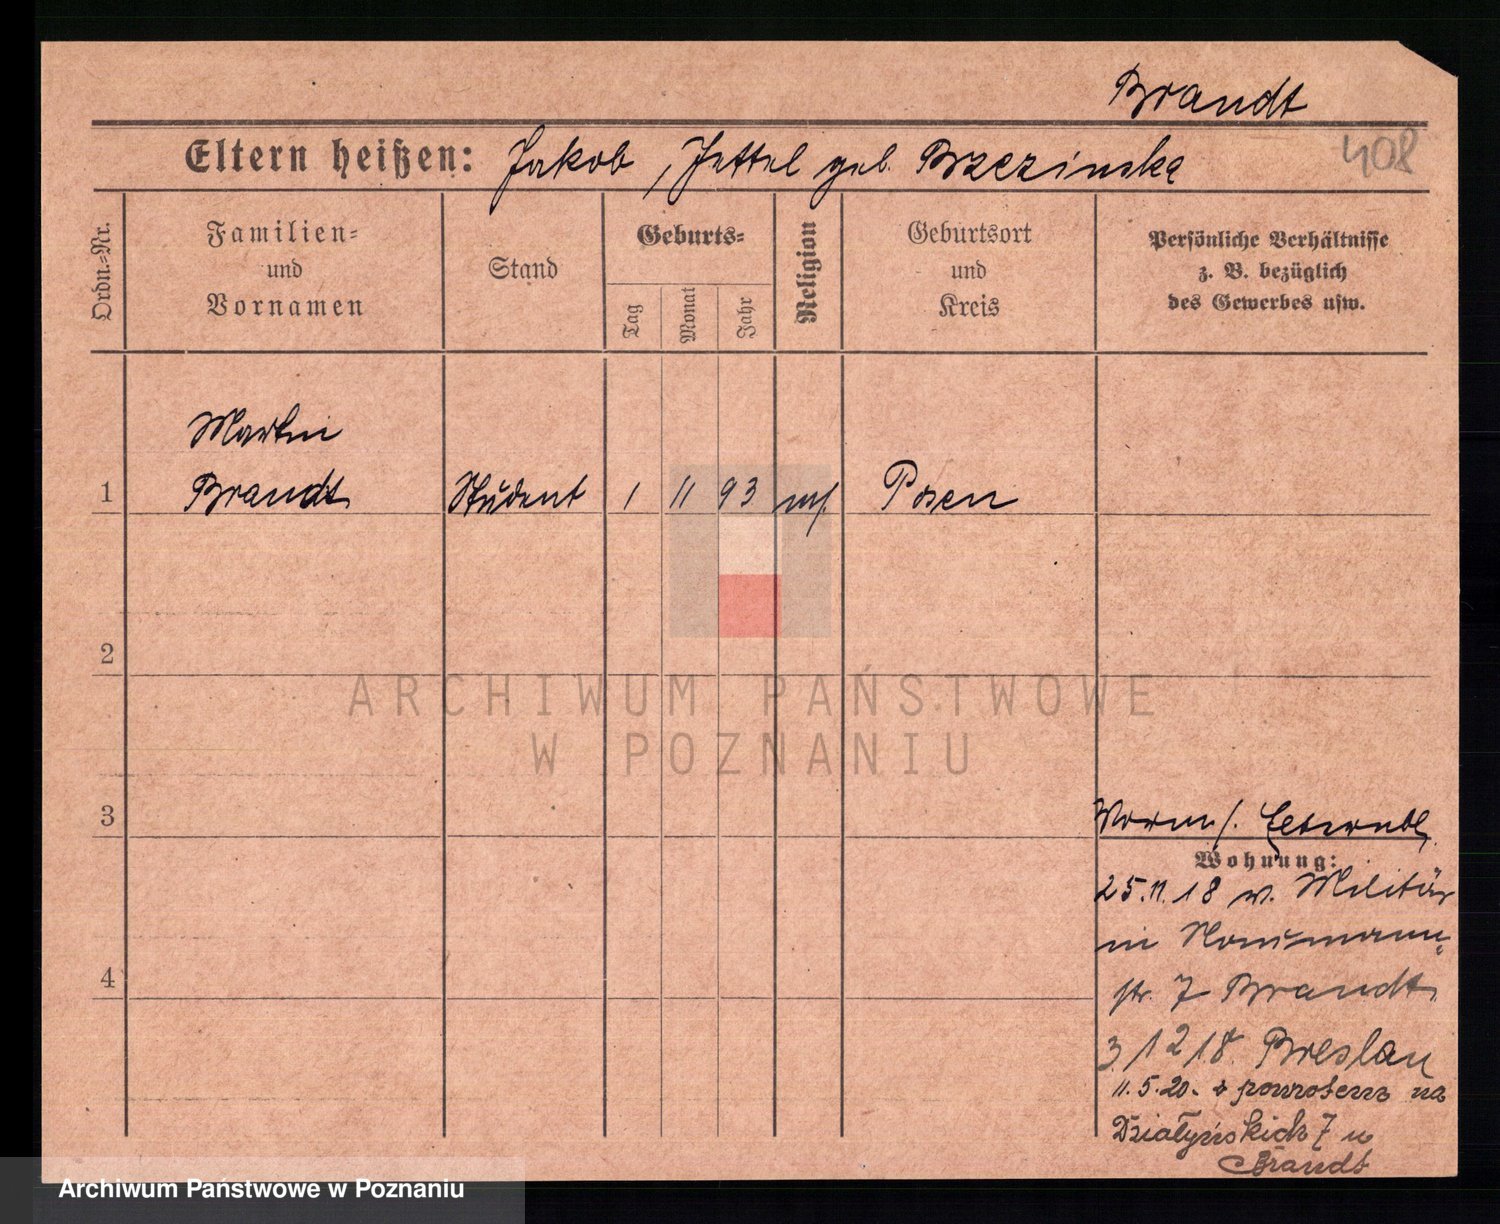 Brandt
408
Eltern heißen: Jakob, Jettel geb. Brzezinska
Ordn.-Nr.
Familien-
und
Vornamen
Stand
Geburts-
Tag
Monat
Jahr
Religion
Geburtsort
und
Kreis
Persönliche Verhältnisse
z. B. bezüglich
des Gewerbes usw.
Martin
1 Brandt Student 1 11 93 mos. Posen
2
ARCHIWUM PAŃSTWOWE
W POZNANIU
3
Wohnung:
25.11.18 v. Militär
in
str. 7 Brandt
3/12 18. Breslau
11.5.20. z powrotem na
Działyńskich 7 u
Brandt
4
Archiwum Państwowe w Poznaniu